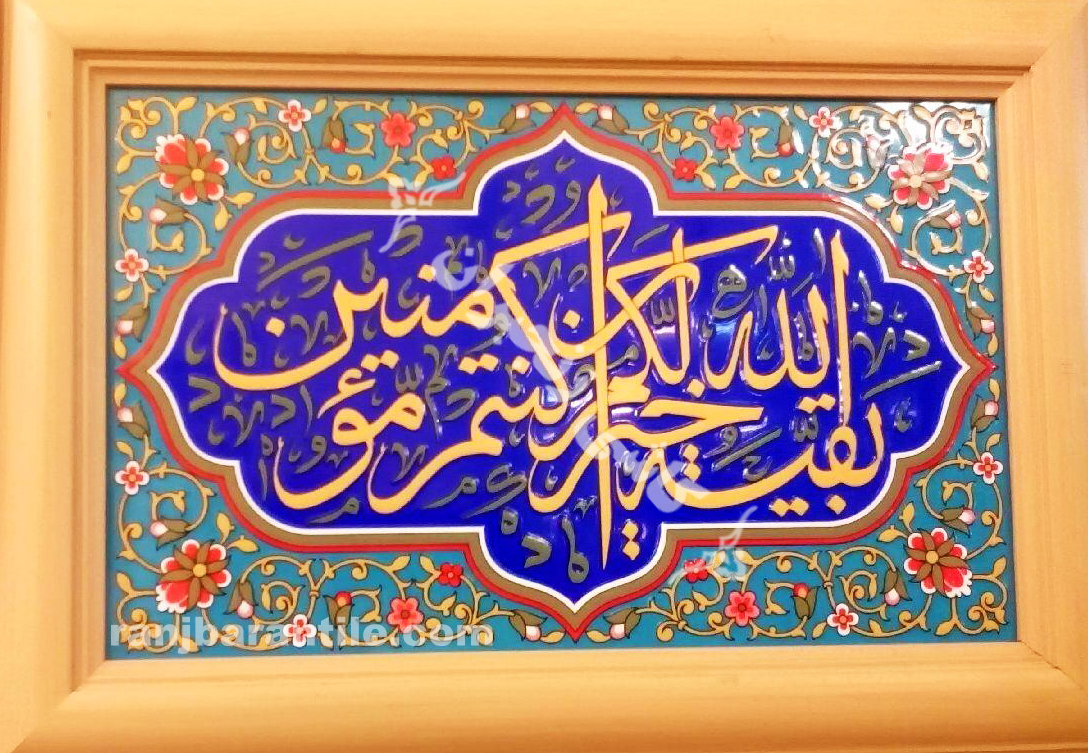 بقیة الله خیر لکم ان کنتم مؤمنین
ranjbarantile.com